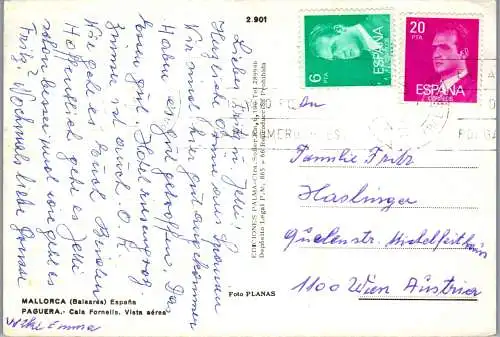 2.901
Lieber Fritz u. Jelli!
Herzliche Grüße aus Spanien
Wir sind hier gut angekommen
Haben es gut getroffen. Das
Essen gut. Hotel
Zimmer ist auch O.K.
Wie geht es Euch Beiden
Hoffentlich geht es Jelli
schon besser und wie geht es
Fritz? Nochmals liebe Grüße
Emma
MALLORCA (Baleares) España
PAGUERA.- Cala Fornells. Vista aérea
EDICIONES PALMA
Depósito Legal P.M. 865 - 66 Reproducción Prohibida
Foto PLANAS
6
PTA
ESPAÑA
20
PTA
ESPAÑA
CORREOS
An
Familie Fritz
Haslinger
Quellenstr.
1100 Wien Austria